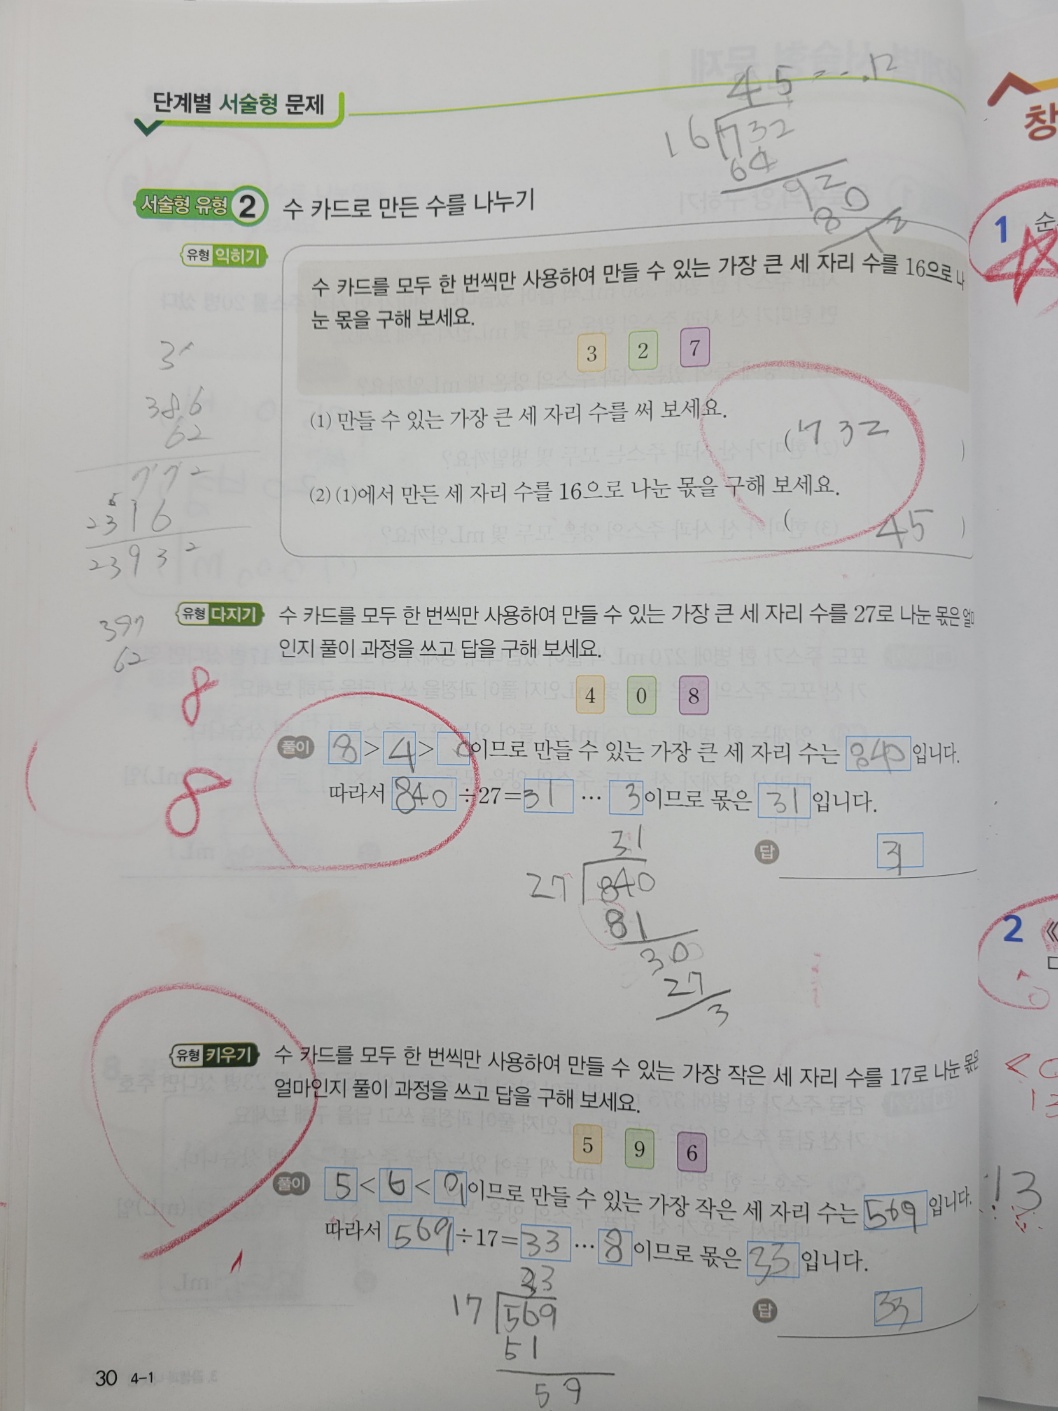 단계별 서술형 문제
45 ... 12
16 732
64
92
80
서술형 유형 2 수 카드로 만든 수를 나누기
유형 익히기
수 카드를 모두 한 번씩만 사용하여 만들 수 있는 가장 큰 세 자리 수를 16으로 나
눈 몫을 구해 보세요.
3 2 7
(1) 만들 수 있는 가장 큰 세 자리 수를 써 보세요.
( 732 )
(2) (1)에서 만든 세 자리 수를 16으로 나눈 몫을 구해 보세요.
( 45 )
386
62
772
2316
23932
397
62
유형 다지기 수 카드를 모두 한 번씩만 사용하여 만들 수 있는 가장 큰 세 자리 수를 27로 나눈 몫은
인지 풀이 과정을 쓰고 답을 구해 보세요.
4 0 8
8
8
풀이 8 > 4 > 0 이므로 만들 수 있는 가장 큰 세 자리 수는 840 입니다.
따라서 840 ÷27= 31 … 3 이므로 몫은 31 입니다.
답 31
31
27 840
81
30
27
3
유형 키우기 수 카드를 모두 한 번씩만 사용하여 만들 수 있는 가장 작은 세 자리 수를 17로 나눈 몫은
얼마인지 풀이 과정을 쓰고 답을 구해 보세요.
5 9 6
풀이 5 < 6 < 9 이므로 만들 수 있는 가장 작은 세 자리 수는 569 입니다.
따라서 569 ÷17= 33 … 8 이므로 몫은 33 입니다.
답 33
33
17 569
51
59
30 4-1
창
1 순
2